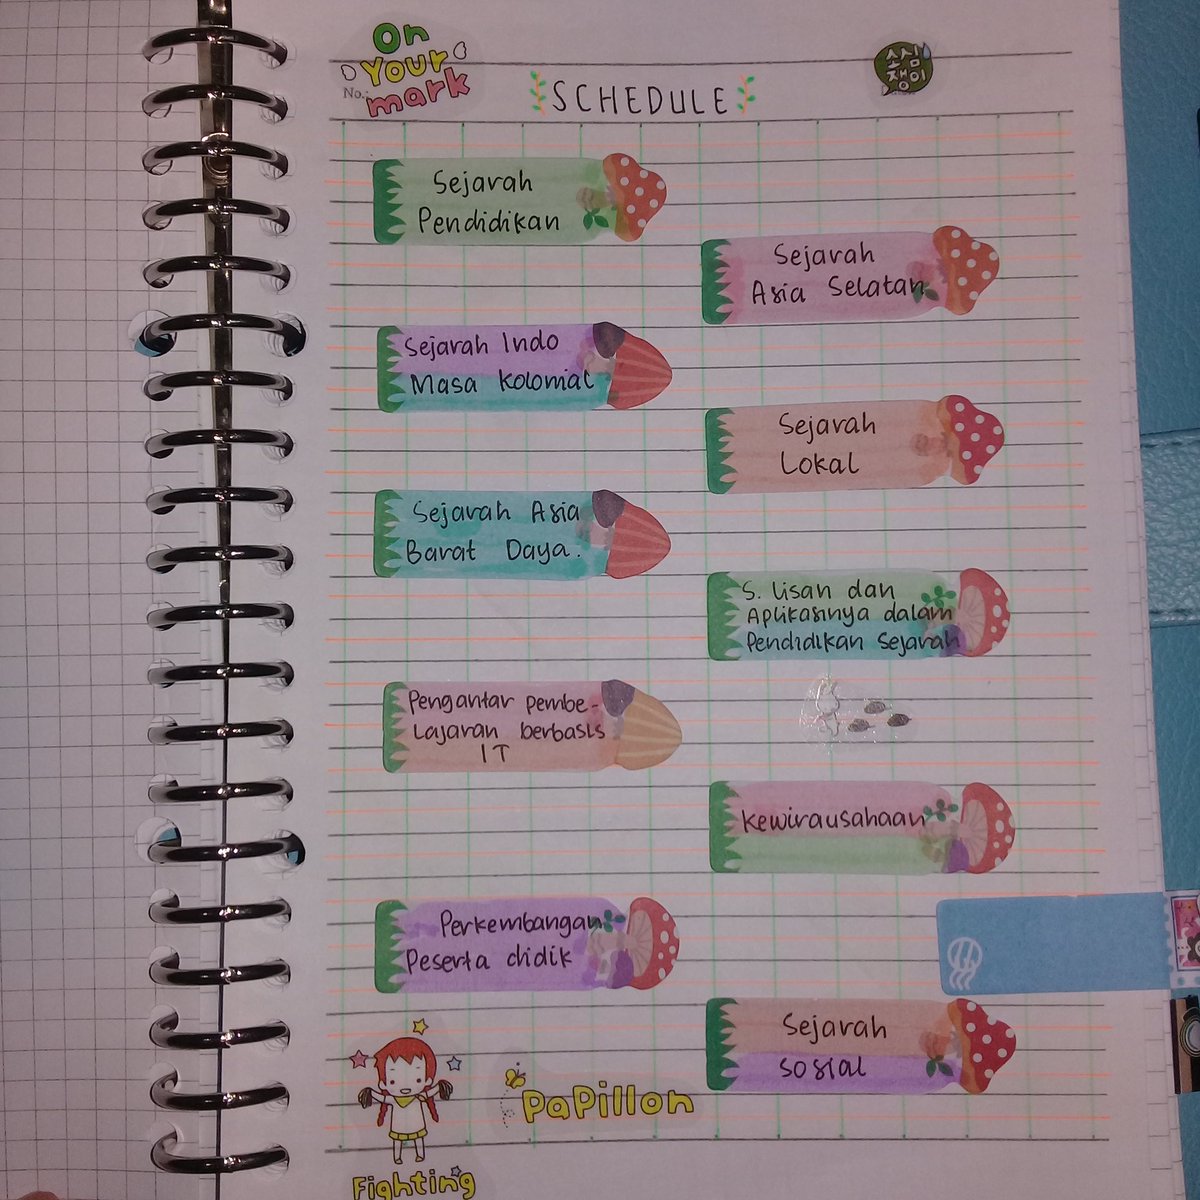 On
Your
mark
No.:
SCHEDULE
소심
쟁이
Sejarah
Pendidikan
Sejarah
Asia Selatan
Sejarah Indo
Masa Kolonial
Sejarah
Lokal
Sejarah Asia
Barat Daya.
S. Lisan dan
Aplikasinya dalam
Pendidikan Sejarah
Pengantar pembe-
Lajaran berbasis
IT
Kewirausahaan
Perkembangan
Peserta didik
Sejarah
Sosial
PaPillon
Fighting